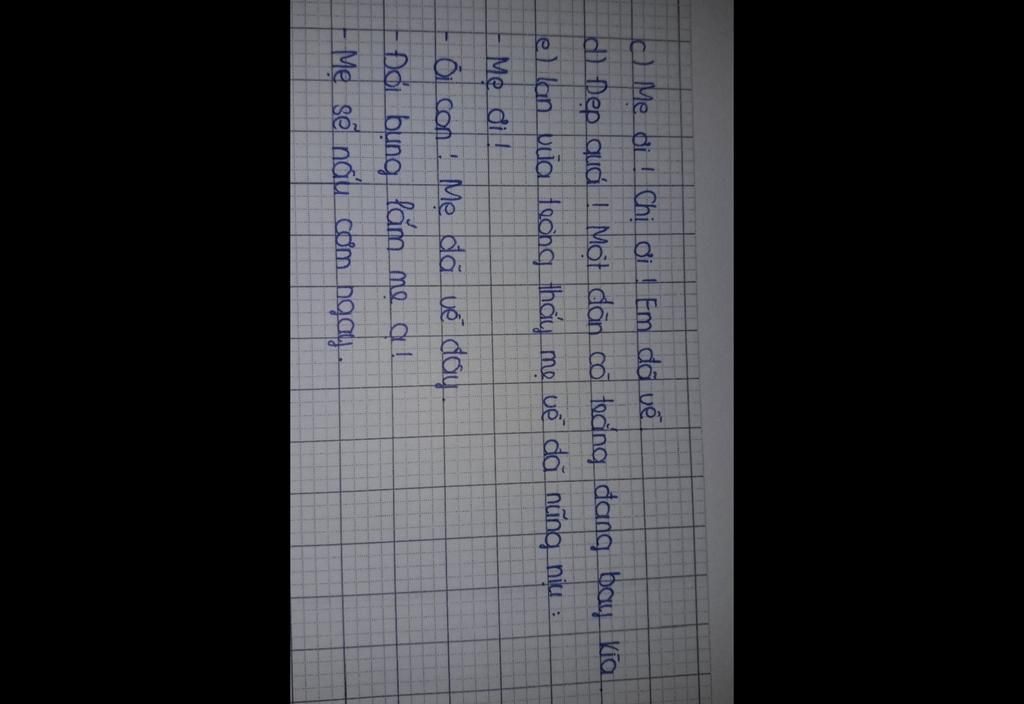 c) Mẹ ơi! Chị ơi! Em đã về
d) Đẹp quá! Một đàn cò trắng đang bay kìa.
e) Lan vừa trông thấy mẹ về đã nũng nịu:
- Mẹ ơi!
- Ôi con! Mẹ đã về đây.
- Đói bụng lắm mẹ ạ!
- Mẹ sẽ nấu cơm ngay.